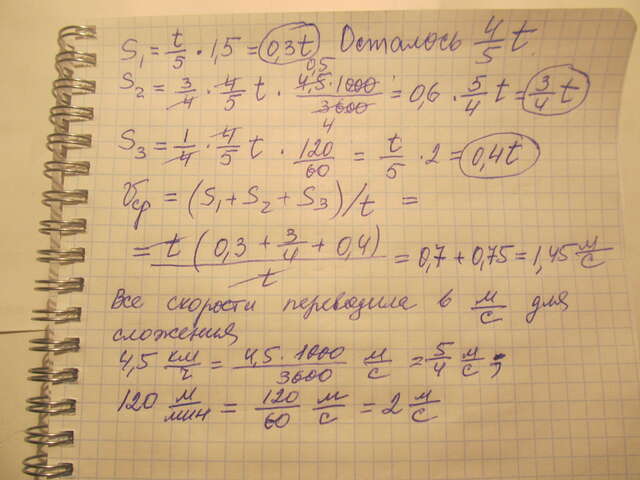 S₁ = t/5 · 1,5 = 0,3t Осталось 4/5 t.
S₂ = 3/4 · 4/5 t · 4,5·1000/3600 = 0,6 · 5/4 t = 3/4 t
0,5
4
S₃ = 1/4 · 4/5 t · 120/60 = t/5 · 2 = 0,4t
υср = (S₁ + S₂ + S₃)/t =
= t(0,3 + 3/4 + 0,4)/t = 0,7 + 0,75 = 1,45 м/с
Все скорости переводила в м/с для
сложения
4,5 км/ч = 4,5·1000/3600 м/с = 5/4 м/с;
120 м/мин = 120/60 м/с = 2 м/с